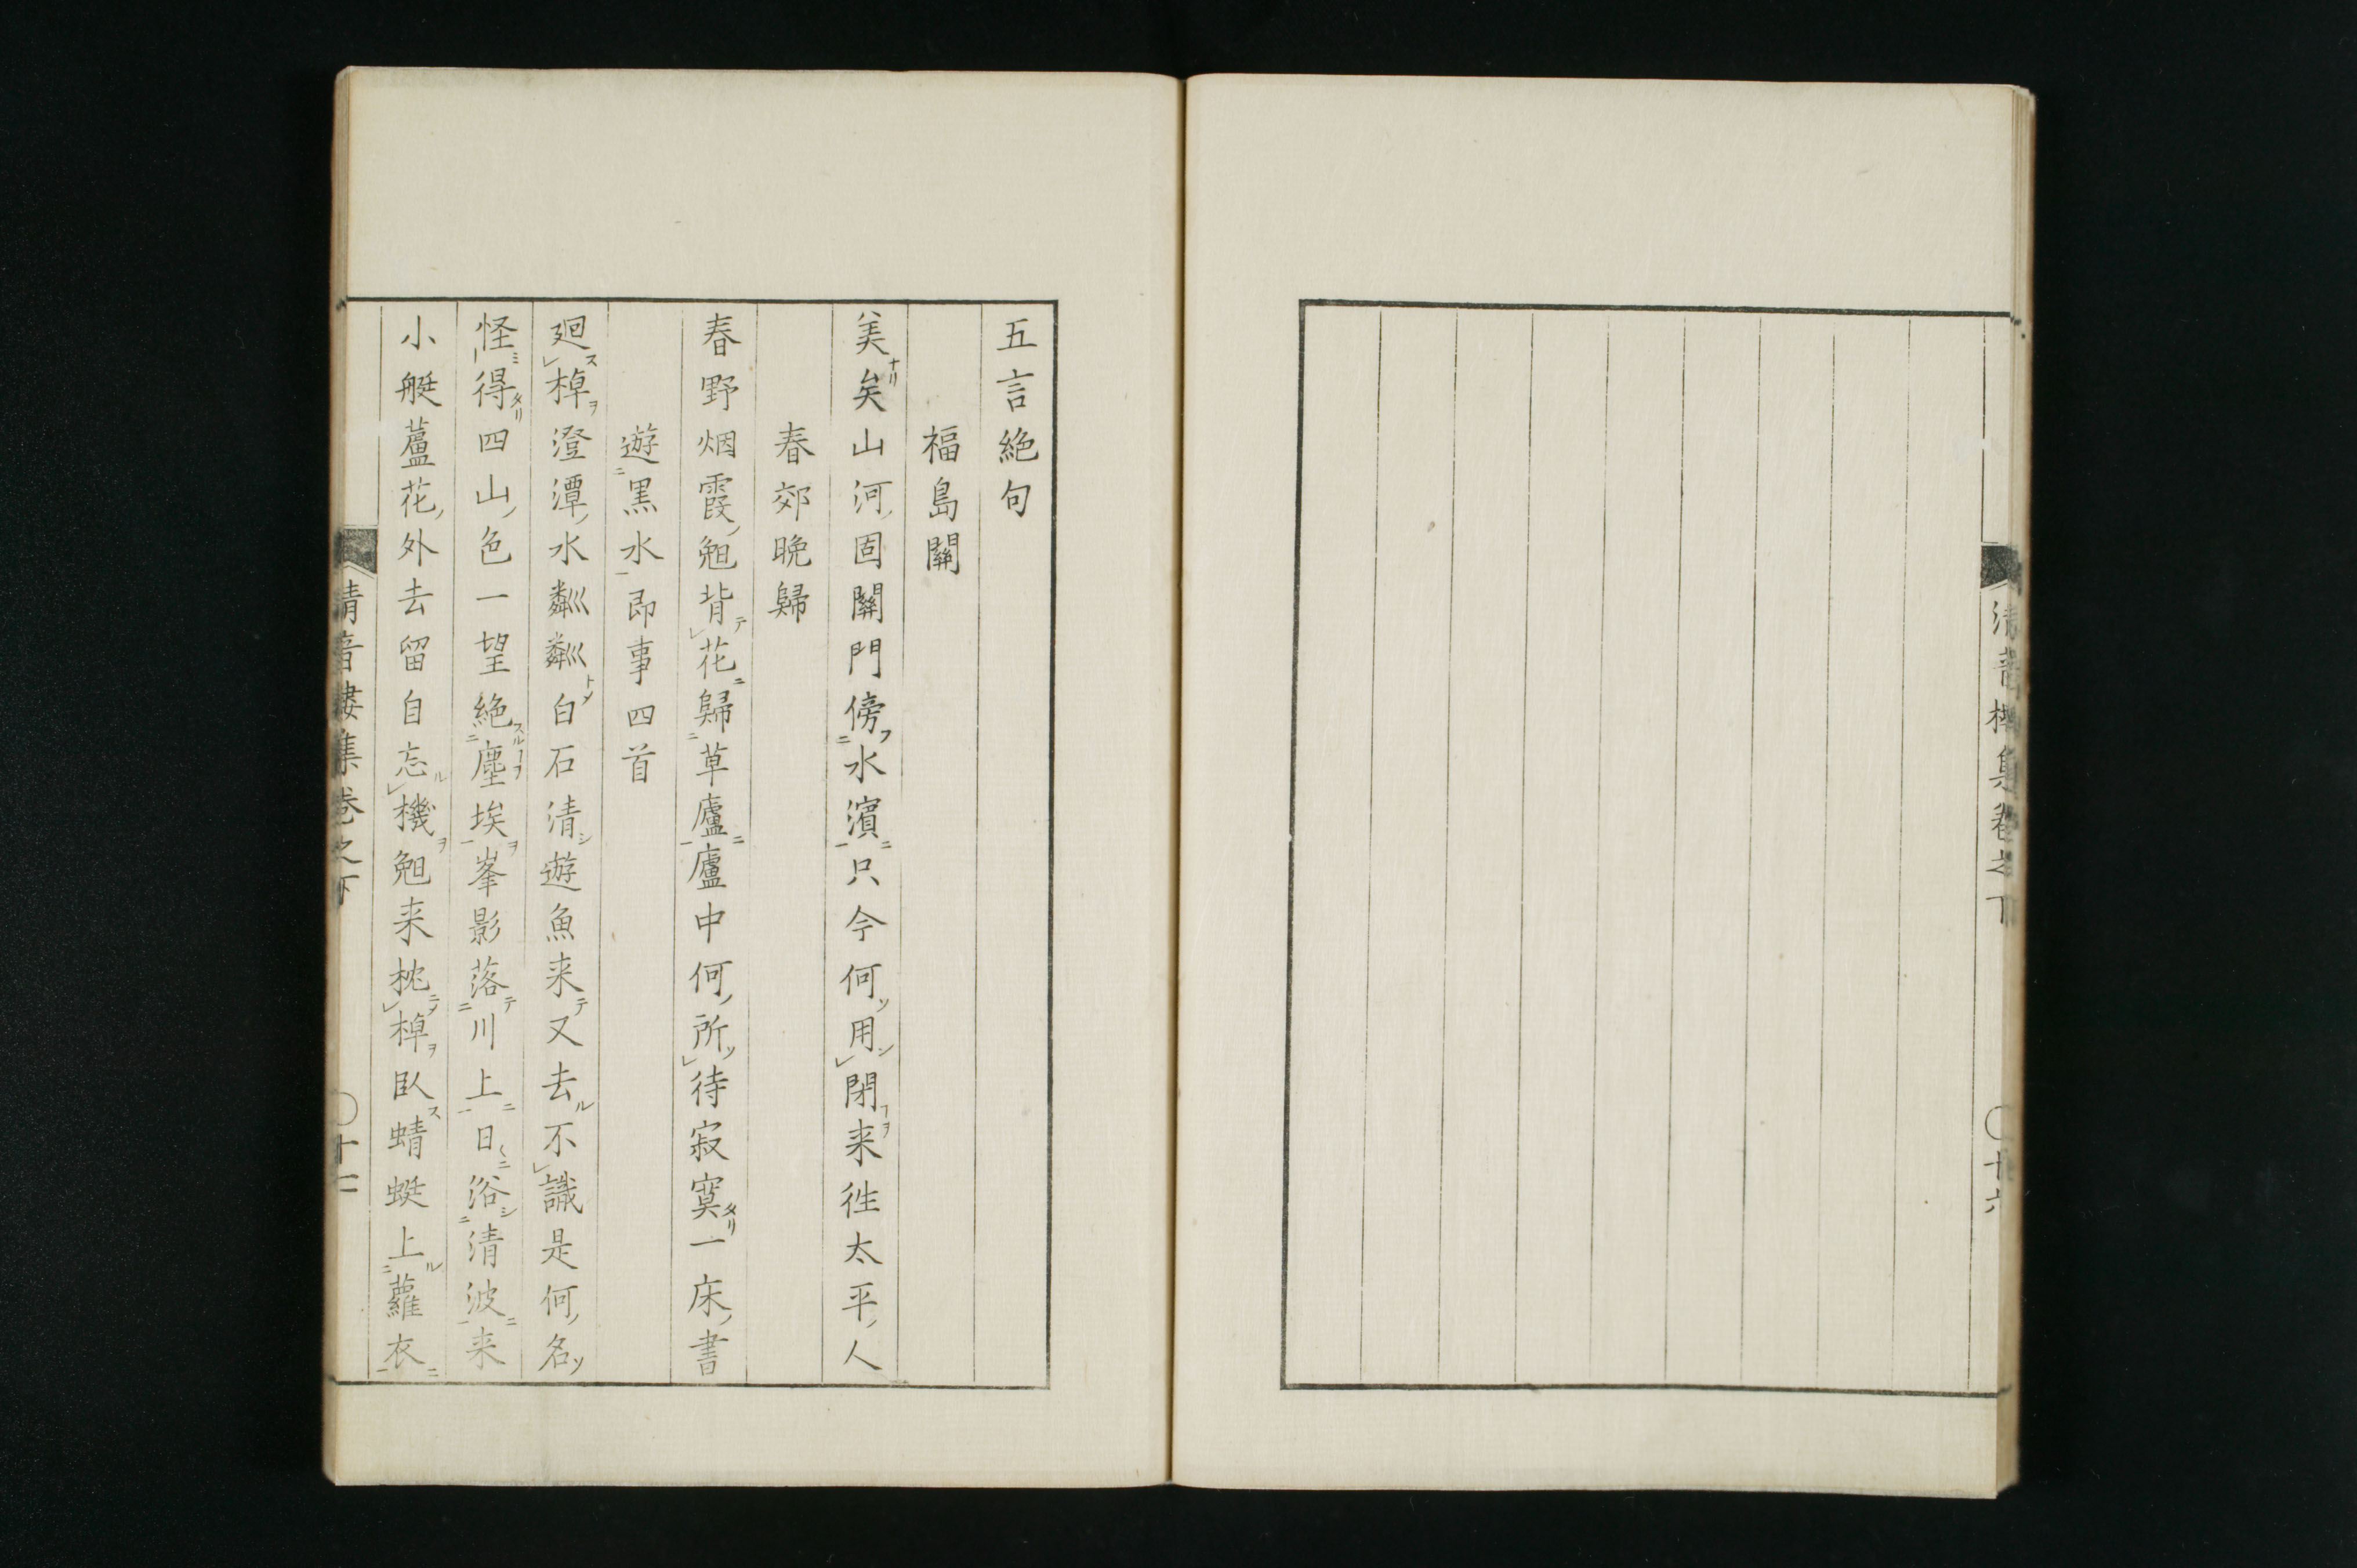 清音樓集卷之下
五言絶句
福島關
美矣山河固關門傍水濱只今何用閉来徃太平人
春郊晩歸
春野烟霞勉背花歸草廬廬中何所待寂寞一床書
遊黒水即事四首
廻棹澄潭水粼粼白石清遊魚来又去不識是何名
怪得四山色一望絶塵埃峯影落川上日浴清波来
小艇蘆花外去留自忘機勉来枕棹臥蜻蜓上蘿衣
清音樓集卷之下